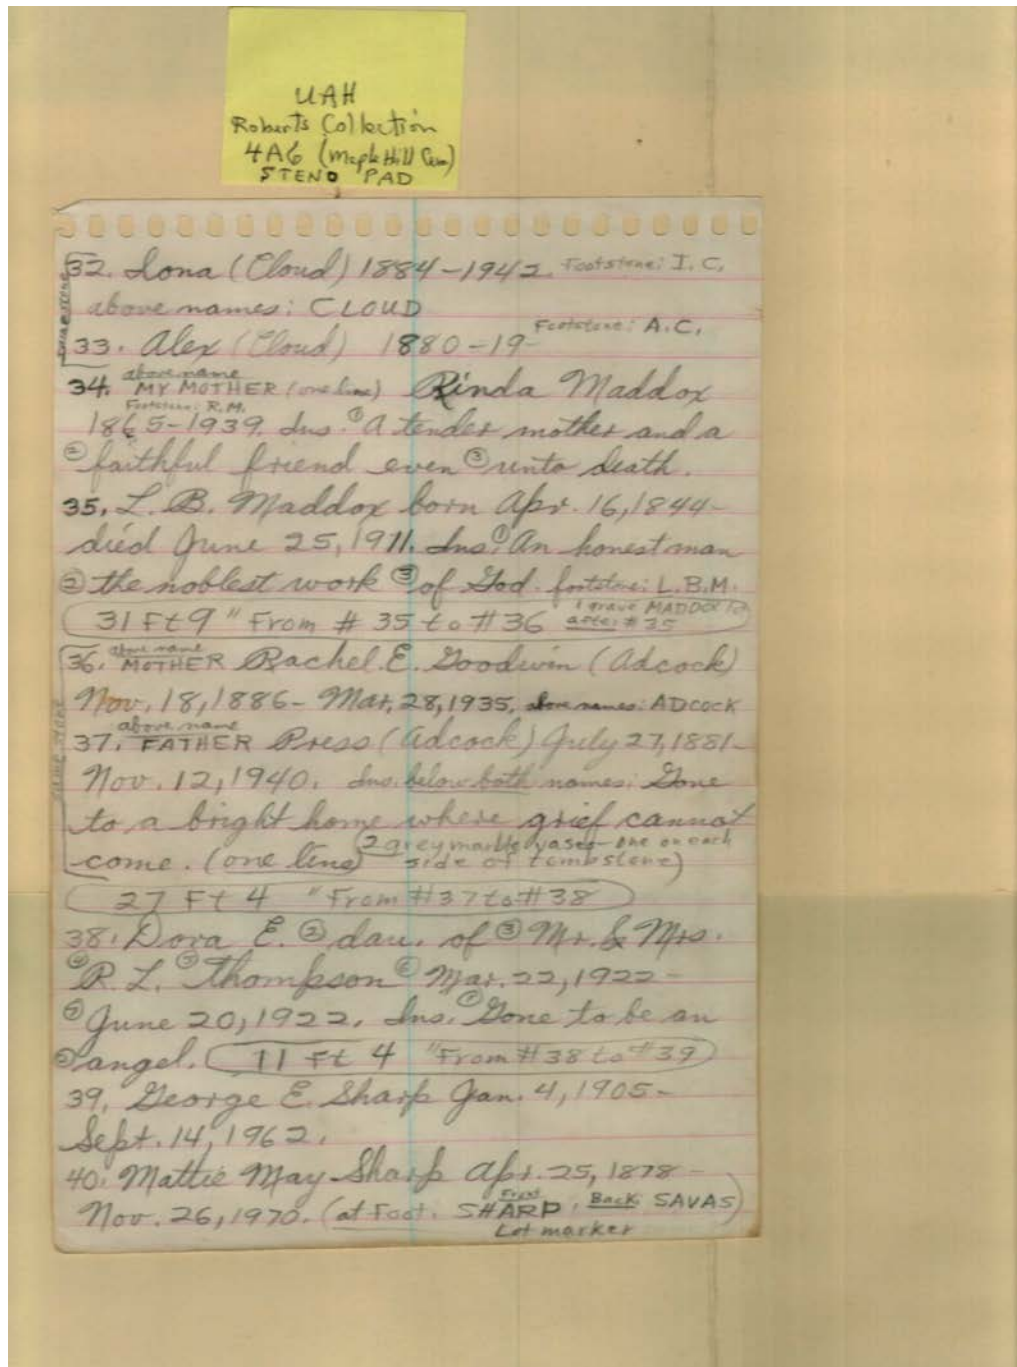 UAH
Roberts Collection
4A6 (Maple Hill Cem)
STENO PAD
32. Iona (Cloud) 1884-1942. Footstone: I.C.
above names: CLOUD
Footstone: A.C.
33. Alex (Cloud) 1880-19-
same stone
above name
34. MY MOTHER (one line) Rinda Maddox
Footstone: R.M.
1865-1939. Ins. ① A tender mother and a
② faithful friend even ③ unto death.
35. L. B. Maddox born Apr. 16, 1844-
died June 25, 1911. Ins. ① An honest man
② the noblest work ③ of God. footstone: L.B.M.
31 Ft 9 " From # 35 to # 36 1 grave MADDOX
after # 35
above name
36. MOTHER Rachel E. Goodwin (Adcock)
Nov. 18, 1886- Mar. 28, 1935. above names: ADCOCK
same stone
above name
37. FATHER Press (Adcock) July 27, 1881-
Nov. 12, 1940. Ins. below both names: Gone
to a bright home where grief cannot
come. (one line) (2 grey marble vases-one on each
side of tombstone)
27 Ft 4 " From #37 to #38
38. Dora E. ② dau. of ③ Mr. & Mrs.
④ R. L. ⑤ Thompson ⑥ Mar. 22, 1922-
⑦ June 20, 1922. Ins. ① Gone to be an
② angel. 11 Ft 4 "From #38 to #39
39. George E. Sharp Jan. 4, 1905-
Sept. 14, 1962.
40. Mattie May Sharp Apr. 25, 1878-
Nov. 26, 1970. (at Foot: Front SHARP, Back: SAVAS)
Lot marker